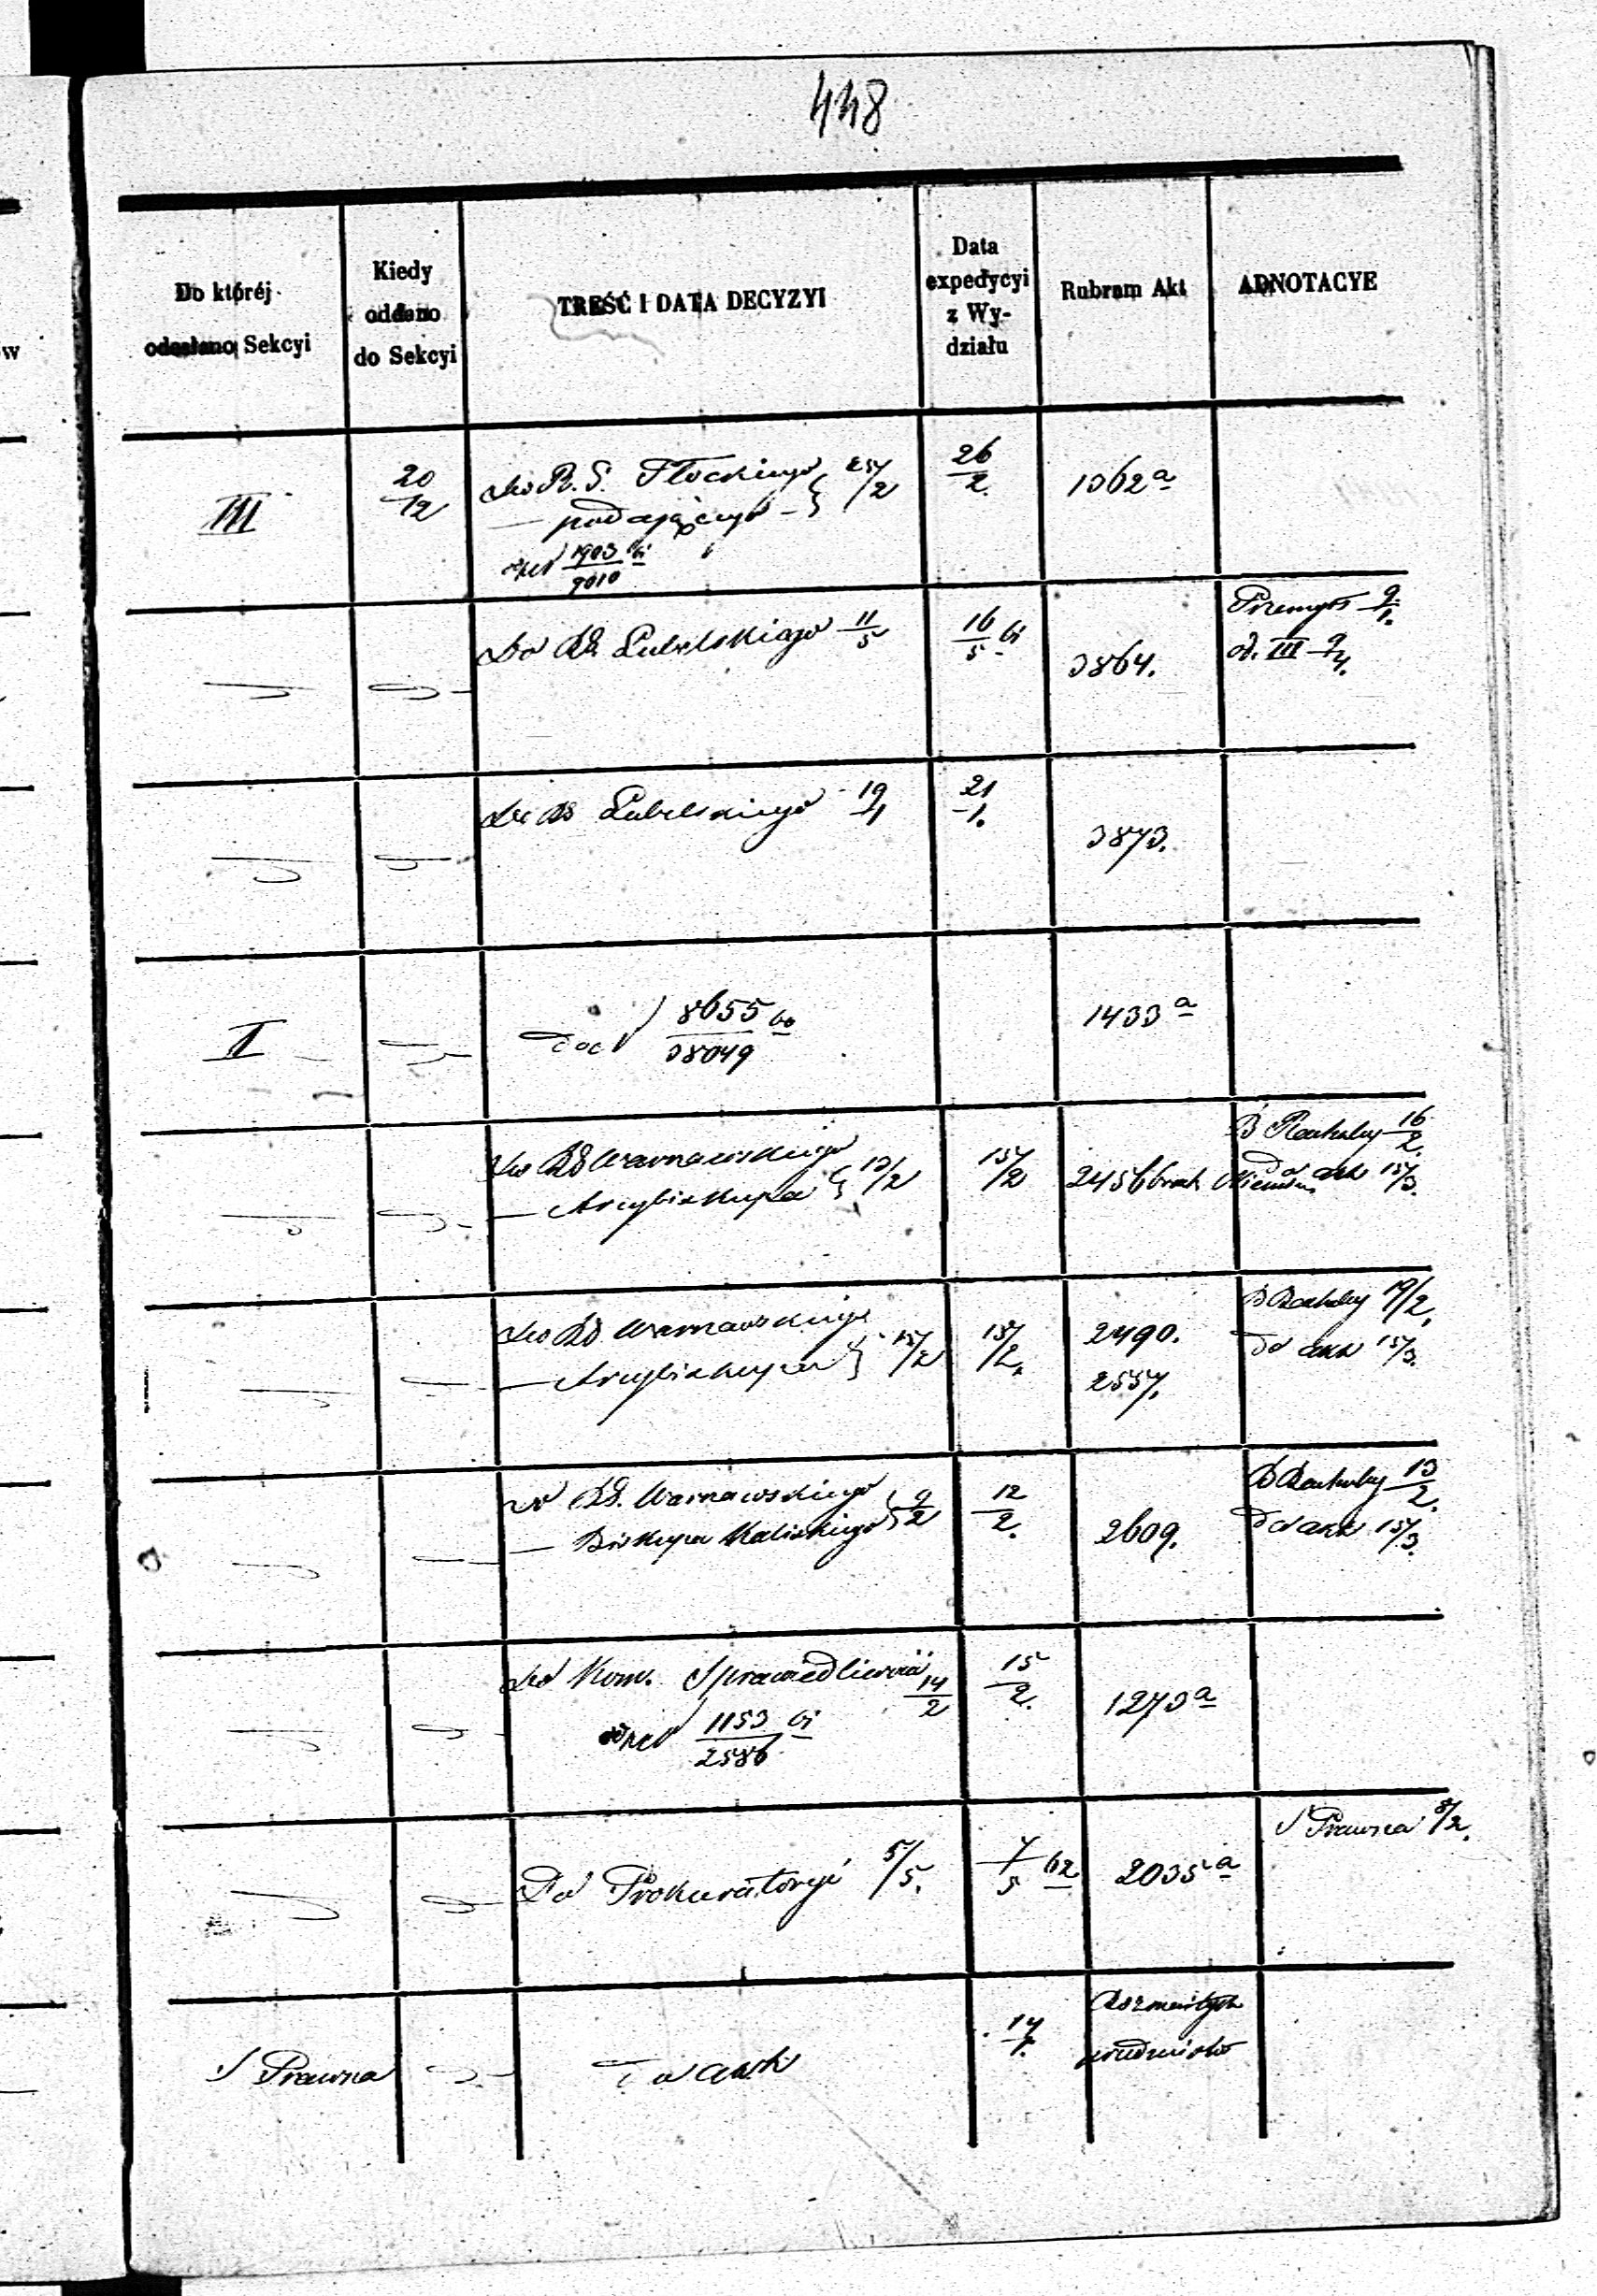 448
Do któréj odesłano Sekcyi
Kiedy oddano do Sekcyi
TREŚĆ I DATA DECYZYI
Data expedycyi z Wydziału
Rubrum Akt
ADNOTACYE
III
20/12
Do R. G. Płockiego
— podającego — } 25/2
1903/9010
26/2
1362 a
Do RG Lubelskiego 11/5
16/5 61
3864.
Przemysł 9/1.
od. III 9/4.
Do RG Lubelskiego 19/1
21/1.
3873.
II
8655 60/38049
1433 a
Do RG Warszawskiego
— Arcybiskupa } 13/2
15/2
2456
16/2.
Do akt 15/3.
Do RG Warszawskiego
— Arcybiskupa } 15/2
15/2.
2490.
2557.
19/2.
Do akt 15/3.
Do RG. Warszawskiego
— Biskupa Kaliskiego } 9/2
12/2.
2609.
13/2.
Do akt 15/3.
Do Kom. Sprawiedliwości 14/2
1153 61/2586
15/2.
1273 a
Do Prokuratoryi 5/5.
7/5 62
2035 a
S Prawna 8/2.
S Prawna
Do akt
Rozmaitych
przedmiotów